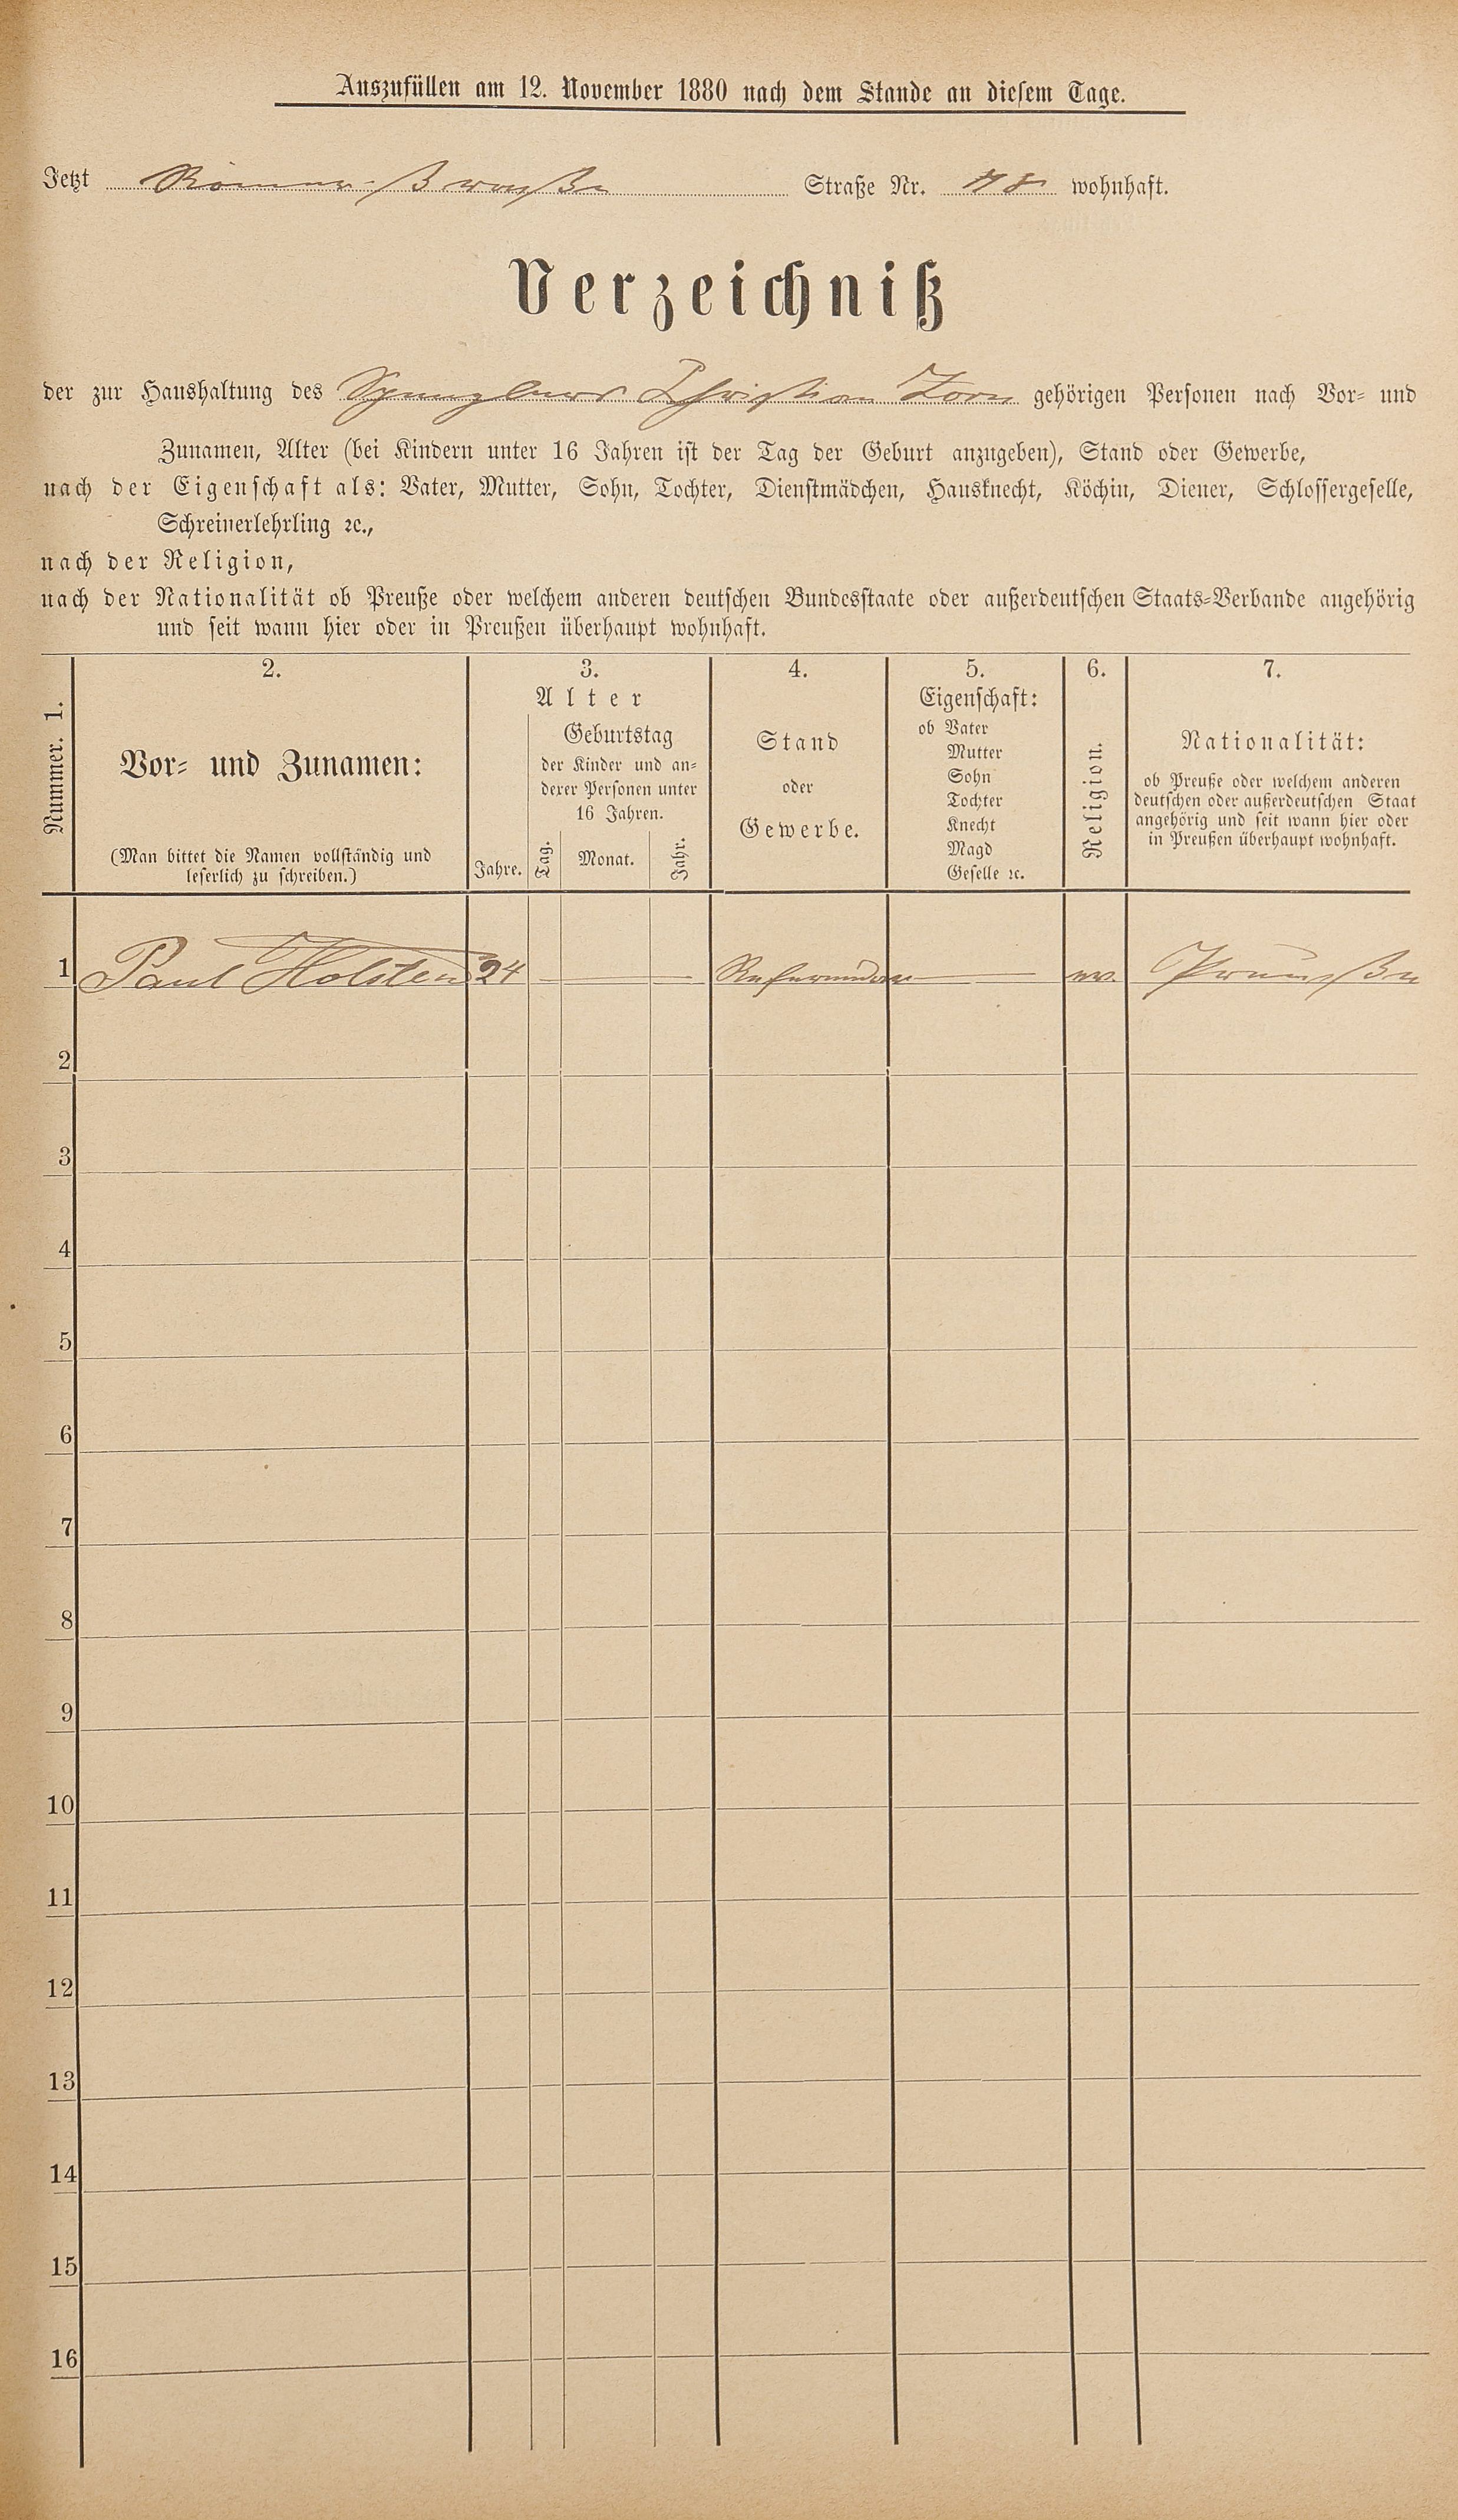 Auszufüllen am 12. November 1880 nach dem Stande an diesem Tage.
Jetzt Römer Straße Straße Nr. 48 wohnhaft.
Verzeichniß
der zur Haushaltung des Spenglers Christian Zorn gehörigen Personen nach Vor- und
Zunamen, Alter (bei Kindern unter 16 Jahren ist der Tag der Geburt anzugeben), Stand oder Gewerbe,
nach der Eigenschaft als: Vater, Mutter, Sohn, Tochter, Dienstmädchen, Hausknecht, Köchin, Diener, Schlossergeselle,
Schreinerlehrling ꝛc.,
nach der Religion,
nach der Nationalität ob Preuße oder welchem anderen deutschen Bundesstaate oder außerdeutschen Staats-Verbande angehörig
und seit wann hier oder in Preußen überhaupt wohnhaft.
Nummer. 1.
2.
Vor- und Zunamen:
(Man bittet die Namen vollständig und
leserlich zu schreiben.)
3.
Alter
Jahre.
Geburtstag
der Kinder und an-
derer Personen unter
16 Jahren.
Tag. Monat. Jahr.
4.
Stand
oder
Gewerbe.
5.
Eigenschaft:
ob Vater
Mutter
Sohn
Tochter
Knecht
Magd
Geselle ꝛc.
6.
Religion.
7.
Nationalität:
ob Preuße oder welchem anderen
deutschen oder außerdeutschen Staat
angehörig und seit wann hier oder
in Preußen überhaupt wohnhaft.
1 Paul Holsten 24 Referendar ev. Preuße
2
3
4
5
6
7
8
9
10
11
12
13
14
15
16